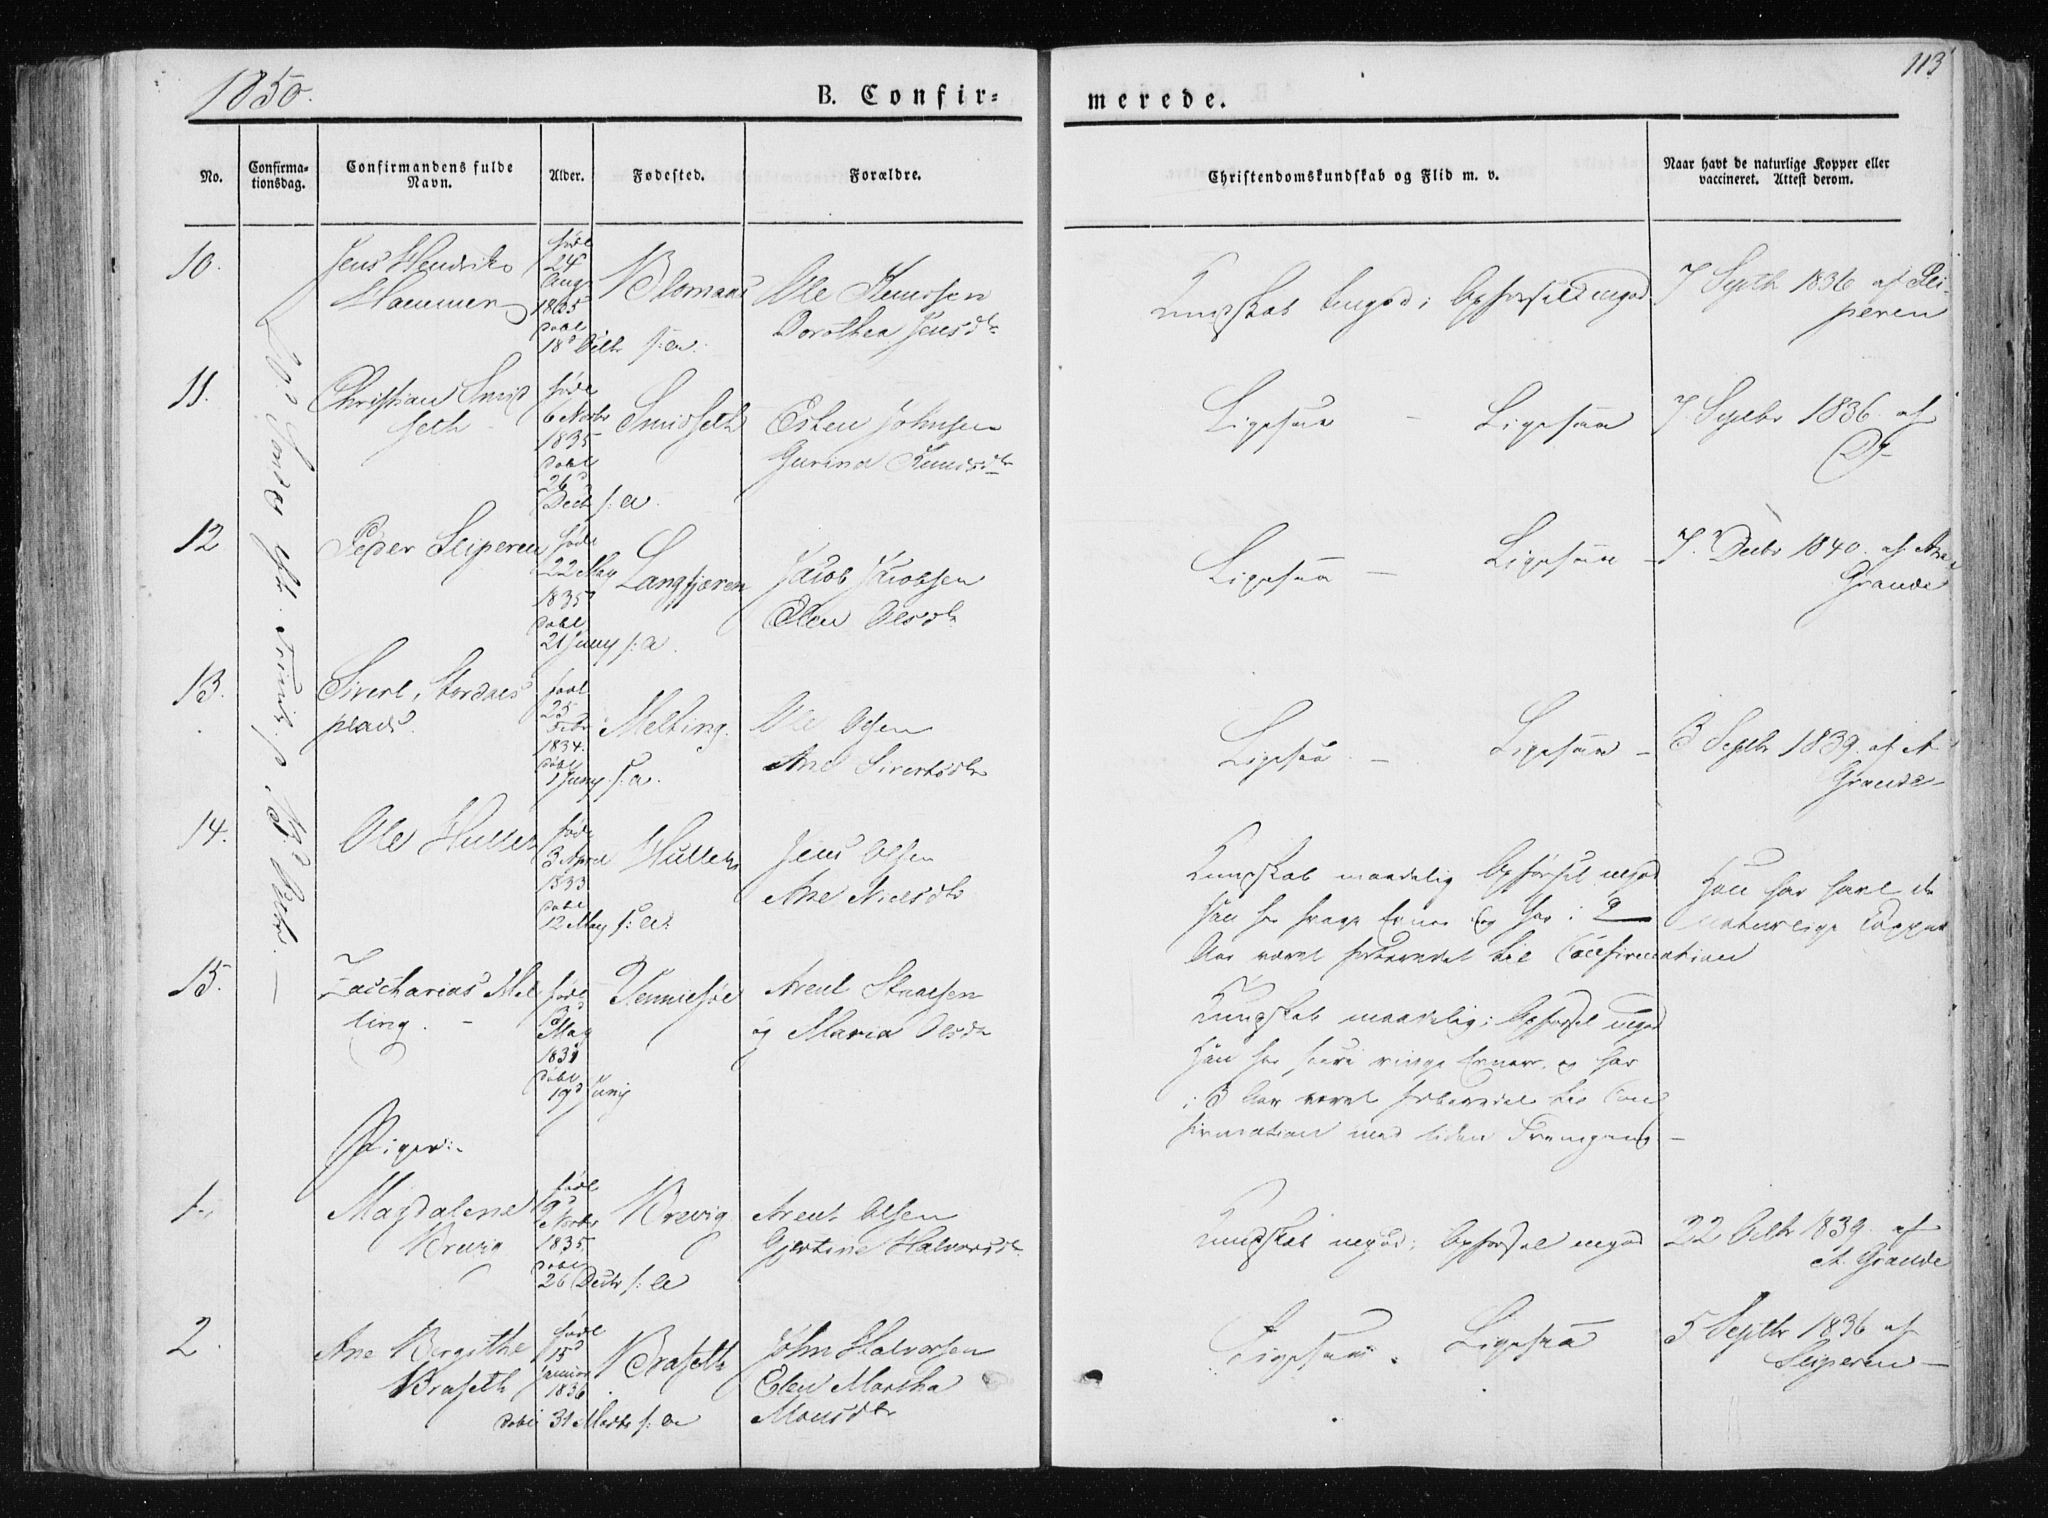 1850.
B. Confir-
merede.
113
No.
Confirma-
tionsdag.
Confirmandens fulde
Navn.
Alder.
Fødested.
Forældre.
Christendomskundskab og Flid m. v.
Naar havt de naturlige Kopper eller
vaccineret. Attest derom.
10.
Jens Hendrik
Hammer
født
24
Aug
1835
døbt
18d Octbr s: a:
Ole Knudsen
Dorothea Jensdtr
Kundskab megod; Opførsel megod
7 Septb 1836 af Sei-
peren
11.
Christian Smid
seth
født
6 Novbr
1835
døbt
26d
Decb s: a.
Smidseth
Esten Johnsen
Gurina Knudsdtr
Ligesaa - Ligesaa
7. Septbr 1836. af
D
12
Peder Seiperen
født
22 May
1835
døbt
21 Juny s: a.
Langfjæren
Jacob Jacobsen
Elen Olsdtr
Ligesaa - Ligesaa -
7. Decbr 1840. af Ane
Grande
13.
Sivert Stordals
plads.
født
25
Febr
1834.
døbt
1 Juny s: a.
Melting.
Ole Olsen
Ane Sivertsdtr
Ligesaa - Ligesaa -
3 Septbr 1839. af A
Grande
14.
Ole Hulleb
født
3 April
1833
døbt
12 May s: a:
Hulleb
Jens Olsen
Ane Nielsdtr
Kundskab maadelig Opførsel megod
Han har svage Evner og har i 2
Aar været forberedet til Confirmation
Han har havt de
naturlige Kopper
15.
Zaccharias Mel
ting. -
født
May
1831
døbt
19d Juny
Arent Staalsen
og Maria Olsdtr
Kundskab maadelig; Opførsel megod
Han har ringe Evner, og har
i 3 Aar været forberedet til Con
firmation med liden Fremgang -
Piger:
1.
Magdalene
Krevig
født
9d
Novbr
1835.
døbt
26 Decbr s: a
Krevig
Arent Olsen
Gjertine Halvorsdtr
Kundskab megod; Opførsel megod
22 Octbr 1839. af
A. Grande
2.
Ane Bergithe
Braseth
født
15d
Januar
1836
døbt 31 Marts s: a
Braseth
John Halvorsen
Elen Martha
Monsdtr
Ligesaa. Ligesaa
5 Septbr 1836 af
Seiperen -